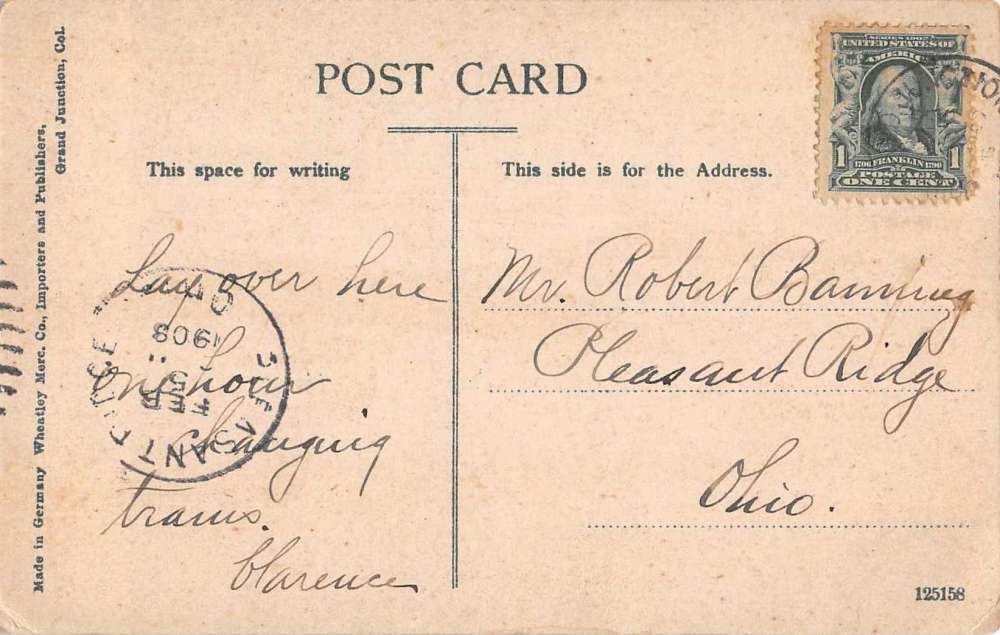 POST CARD
This space for writing
This side is for the Address.
SERIES 1902
UNITED STATES OF
AMERICA
1706 FRANKLIN 1790
1 1
POSTAGE
ONE CENT
CTION
Lay over here
one hour
changing
trains.
Clarence
Mr. Robert Banning
Pleasant Ridge
Ohio.
PLEASANT RIDGE
FEB
1908
Made in Germany Wheatley Merc. Co., Importers and Publishers,
Grand Junction, Col.
125158